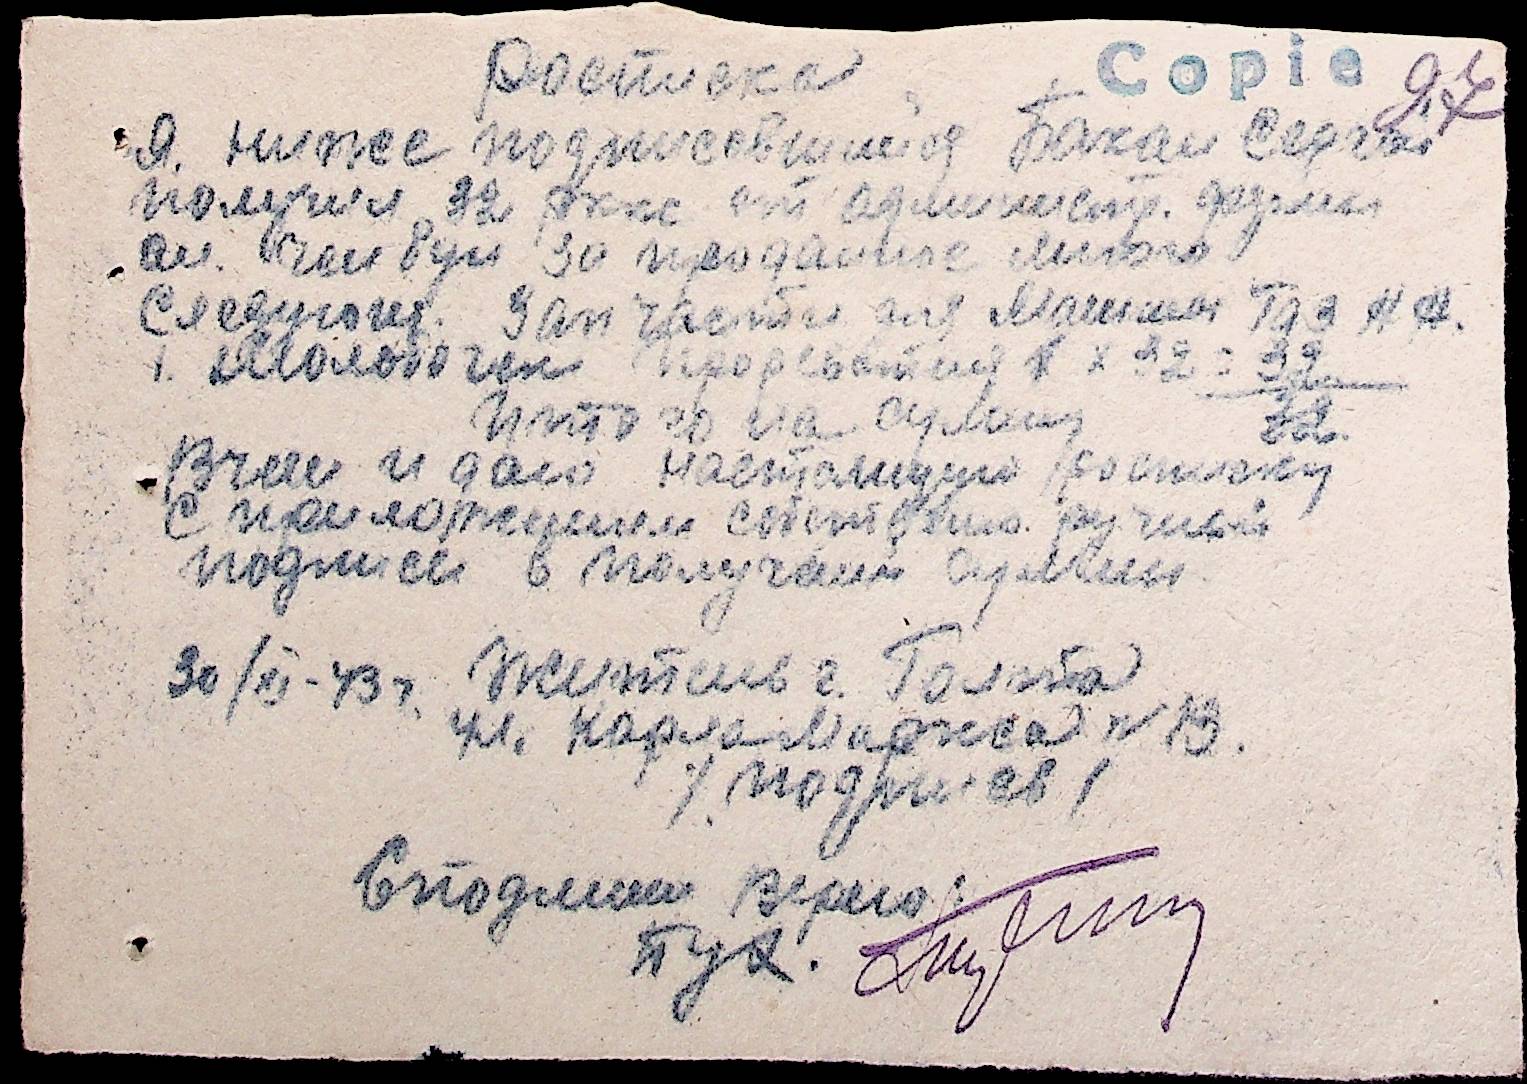 Росписка
Copie
97
Я. ниже подписавшийся Бакан Сергей
получил 32 рккс от администр. фермы
ам. Чембун за проданное мною
Следующ. Зап части для Машины Газ АА.
1. Молоточек 1 х 32 = 32
Итого на сумму 32.
Вчем и даю настоящую росписку
С приложением собственно ручной
подписи в получении суммы.
30/XI-43 г. Житель г. Голта
ул. Карла Маркса № 13.
/подпись/
Сподлиным верно:
Бух.